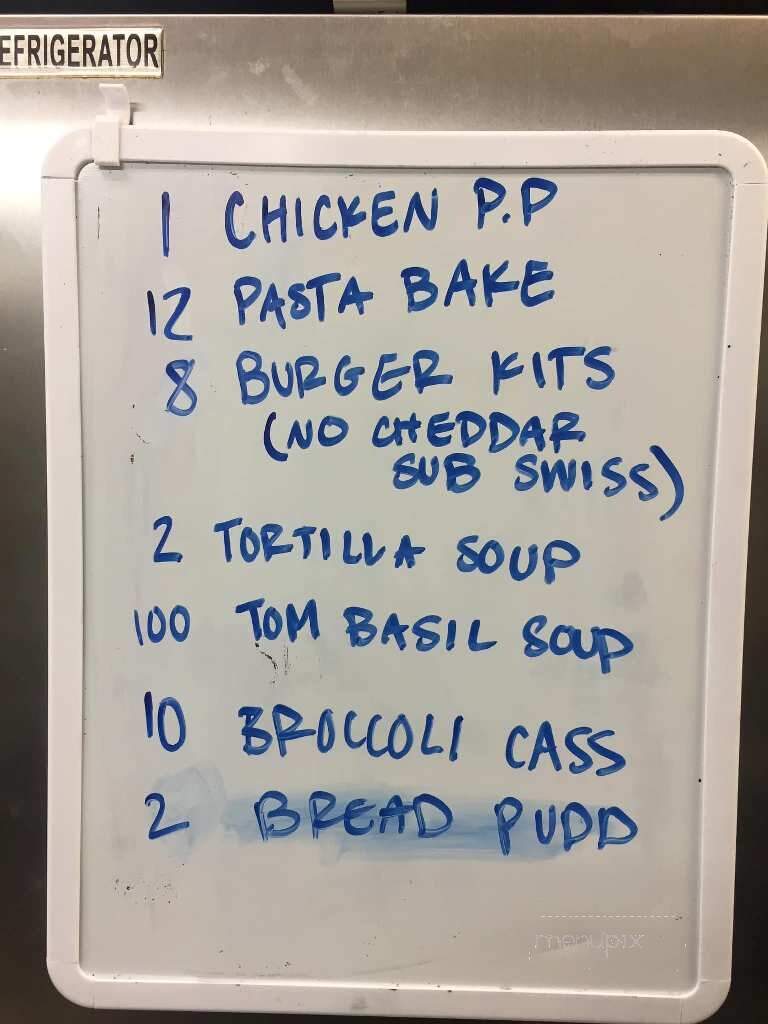 EFRIGERATOR
1 CHICKEN P.P
12 PASTA BAKE
8 BURGER KITS
(NO CHEDDAR
SUB SWISS)
2 TORTILLA SOUP
100 TOM BASIL SOUP
10 BROCCOLI CASS
2 BREAD PUDD
menupix